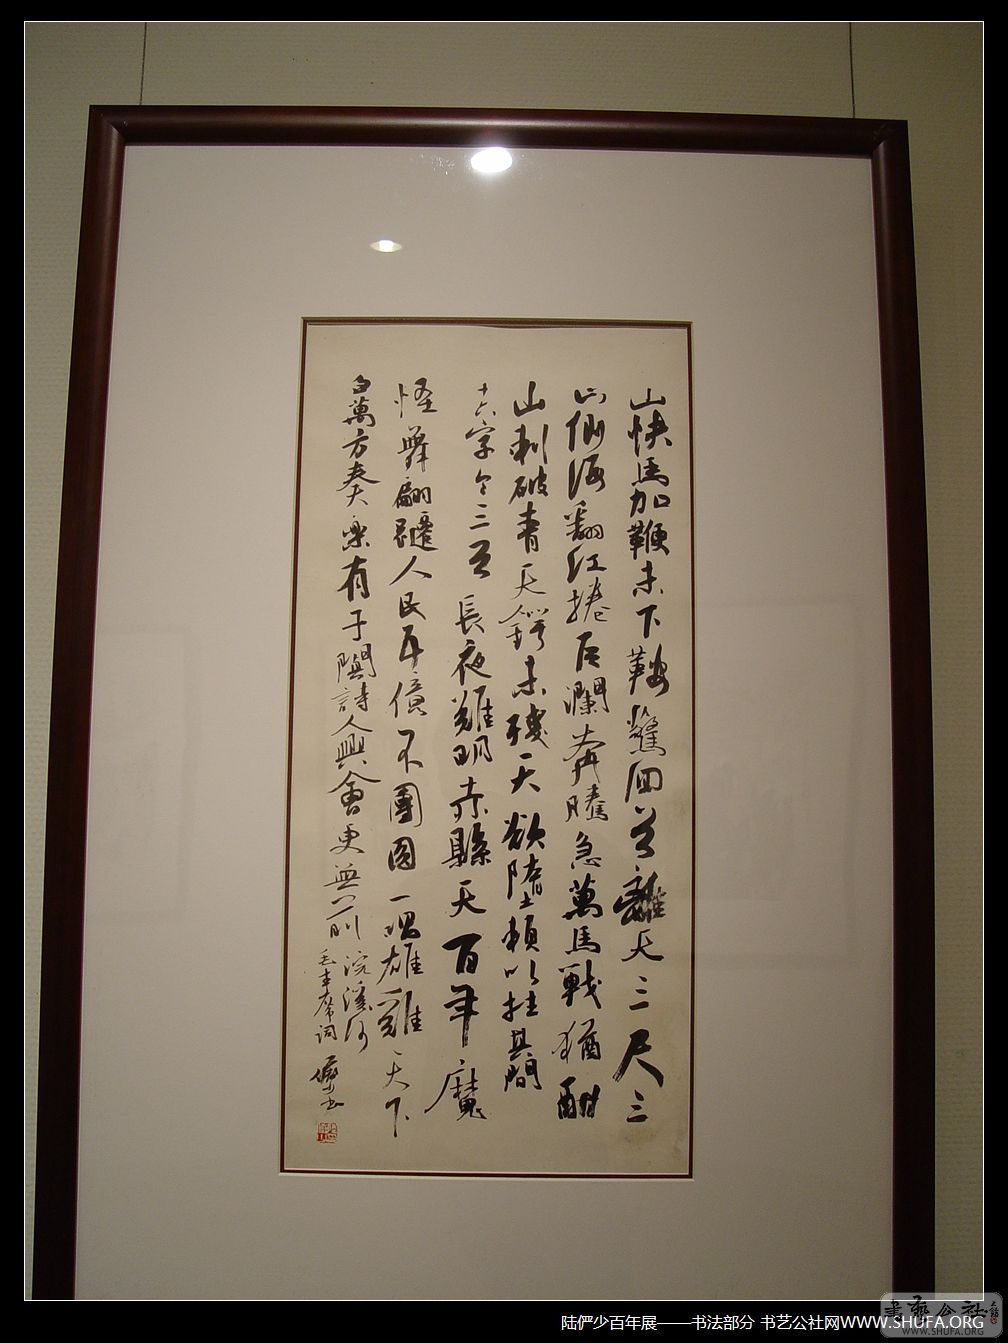 山快馬加鞭未下鞍驚回首離天三尺三
山倒海翻江捲巨瀾奔騰急萬馬戰猶酣
山刺破青天鍔未殘天欲墮賴以拄其間
十六字令三首 長夜難明赤縣天百年魔
怪舞翩躚人民五億不團圓一唱雄雞天下
白萬方奏樂有于闐詩人興會更無前 浣溪沙
毛主席詞 儼少書
陆俨少百年展——书法部分 书艺公社网WWW.SHUFA.ORG
書藝公社
WWW.SHUFA.ORG